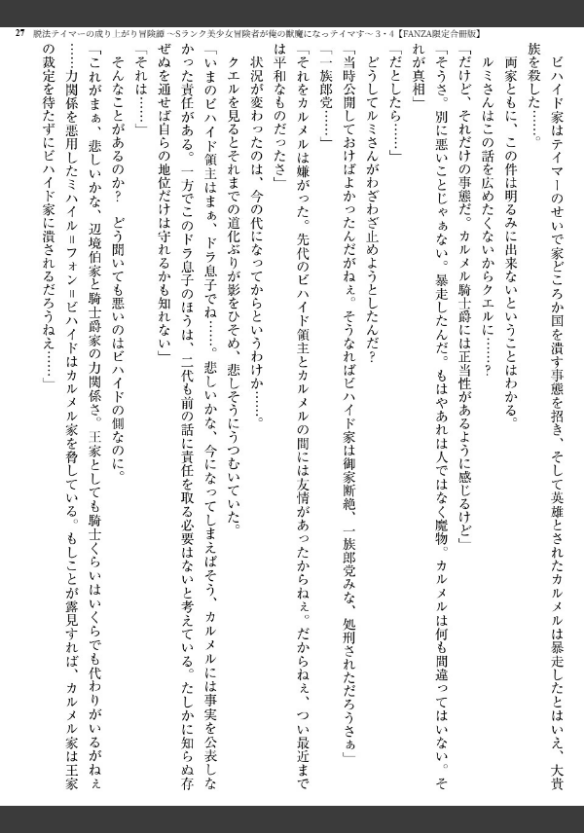 27 脱法テイマーの成り上がり冒険譚 ～Sランク美少女冒険者が俺の獣魔になっテイマす～ 3・4【FANZA限定合冊版】
　ビハイド家はテイマーのせいで家どころか国を潰す事態を招き、そして英雄とされたカルメルは暴走したとはいえ、大貴
族を殺した……。
　両家ともに、この件は明るみに出来ないということはわかる。
　ルミさんはこの話を広めたくないからクエルに……？
「だけど、それだけの事態だ。カルメル騎士爵には正当性があるように感じるけど」
「そうさ。別に悪いことじゃぁない。暴走したんだ。もはやあれは人ではなく魔物。カルメルは何も間違ってはいない。そ
れが真相」
「だとしたら……」
　どうしてルミさんがわざわざ止めようとしたんだ？
「当時公開しておけばよかったんだがねぇ。そうなればビハイド家は御家断絶、一族郎党みな、処刑されただろうさぁ」
「一族郎党……」
「それをカルメルは嫌がった。先代のビハイド領主とカルメルの間には友情があったからねぇ。だからねぇ、つい最近まで
は平和なものだったさ」
　状況が変わったのは、今の代になってからというわけか……。
　クエルを見るとそれまでの道化ぶりが影をひそめ、悲しそうにうつむいていた。
「いまのビハイド領主はまぁ、ドラ息子でね……。悲しいかな、今になってしまえばそう、カルメルには事実を公表しな
かった責任がある。一方でこのドラ息子のほうは、二代も前の話に責任を取る必要はないと考えている。たしかに知らぬ存
ぜぬを通せば自らの地位だけは守れるかも知れない」
「それは……」
　そんなことがあるのか？　どう聞いても悪いのはビハイドの側なのに。
「これがまぁ、悲しいかな、辺境伯家と騎士爵家の力関係さ。王家としても騎士くらいはいくらでも代わりがいるがねぇ
……力関係を悪用したミハイル＝フォン＝ビハイドはカルメル家を脅している。もしことが露見すれば、カルメル家は王家
の裁定を待たずにビハイド家に潰されるだろうねぇ……」